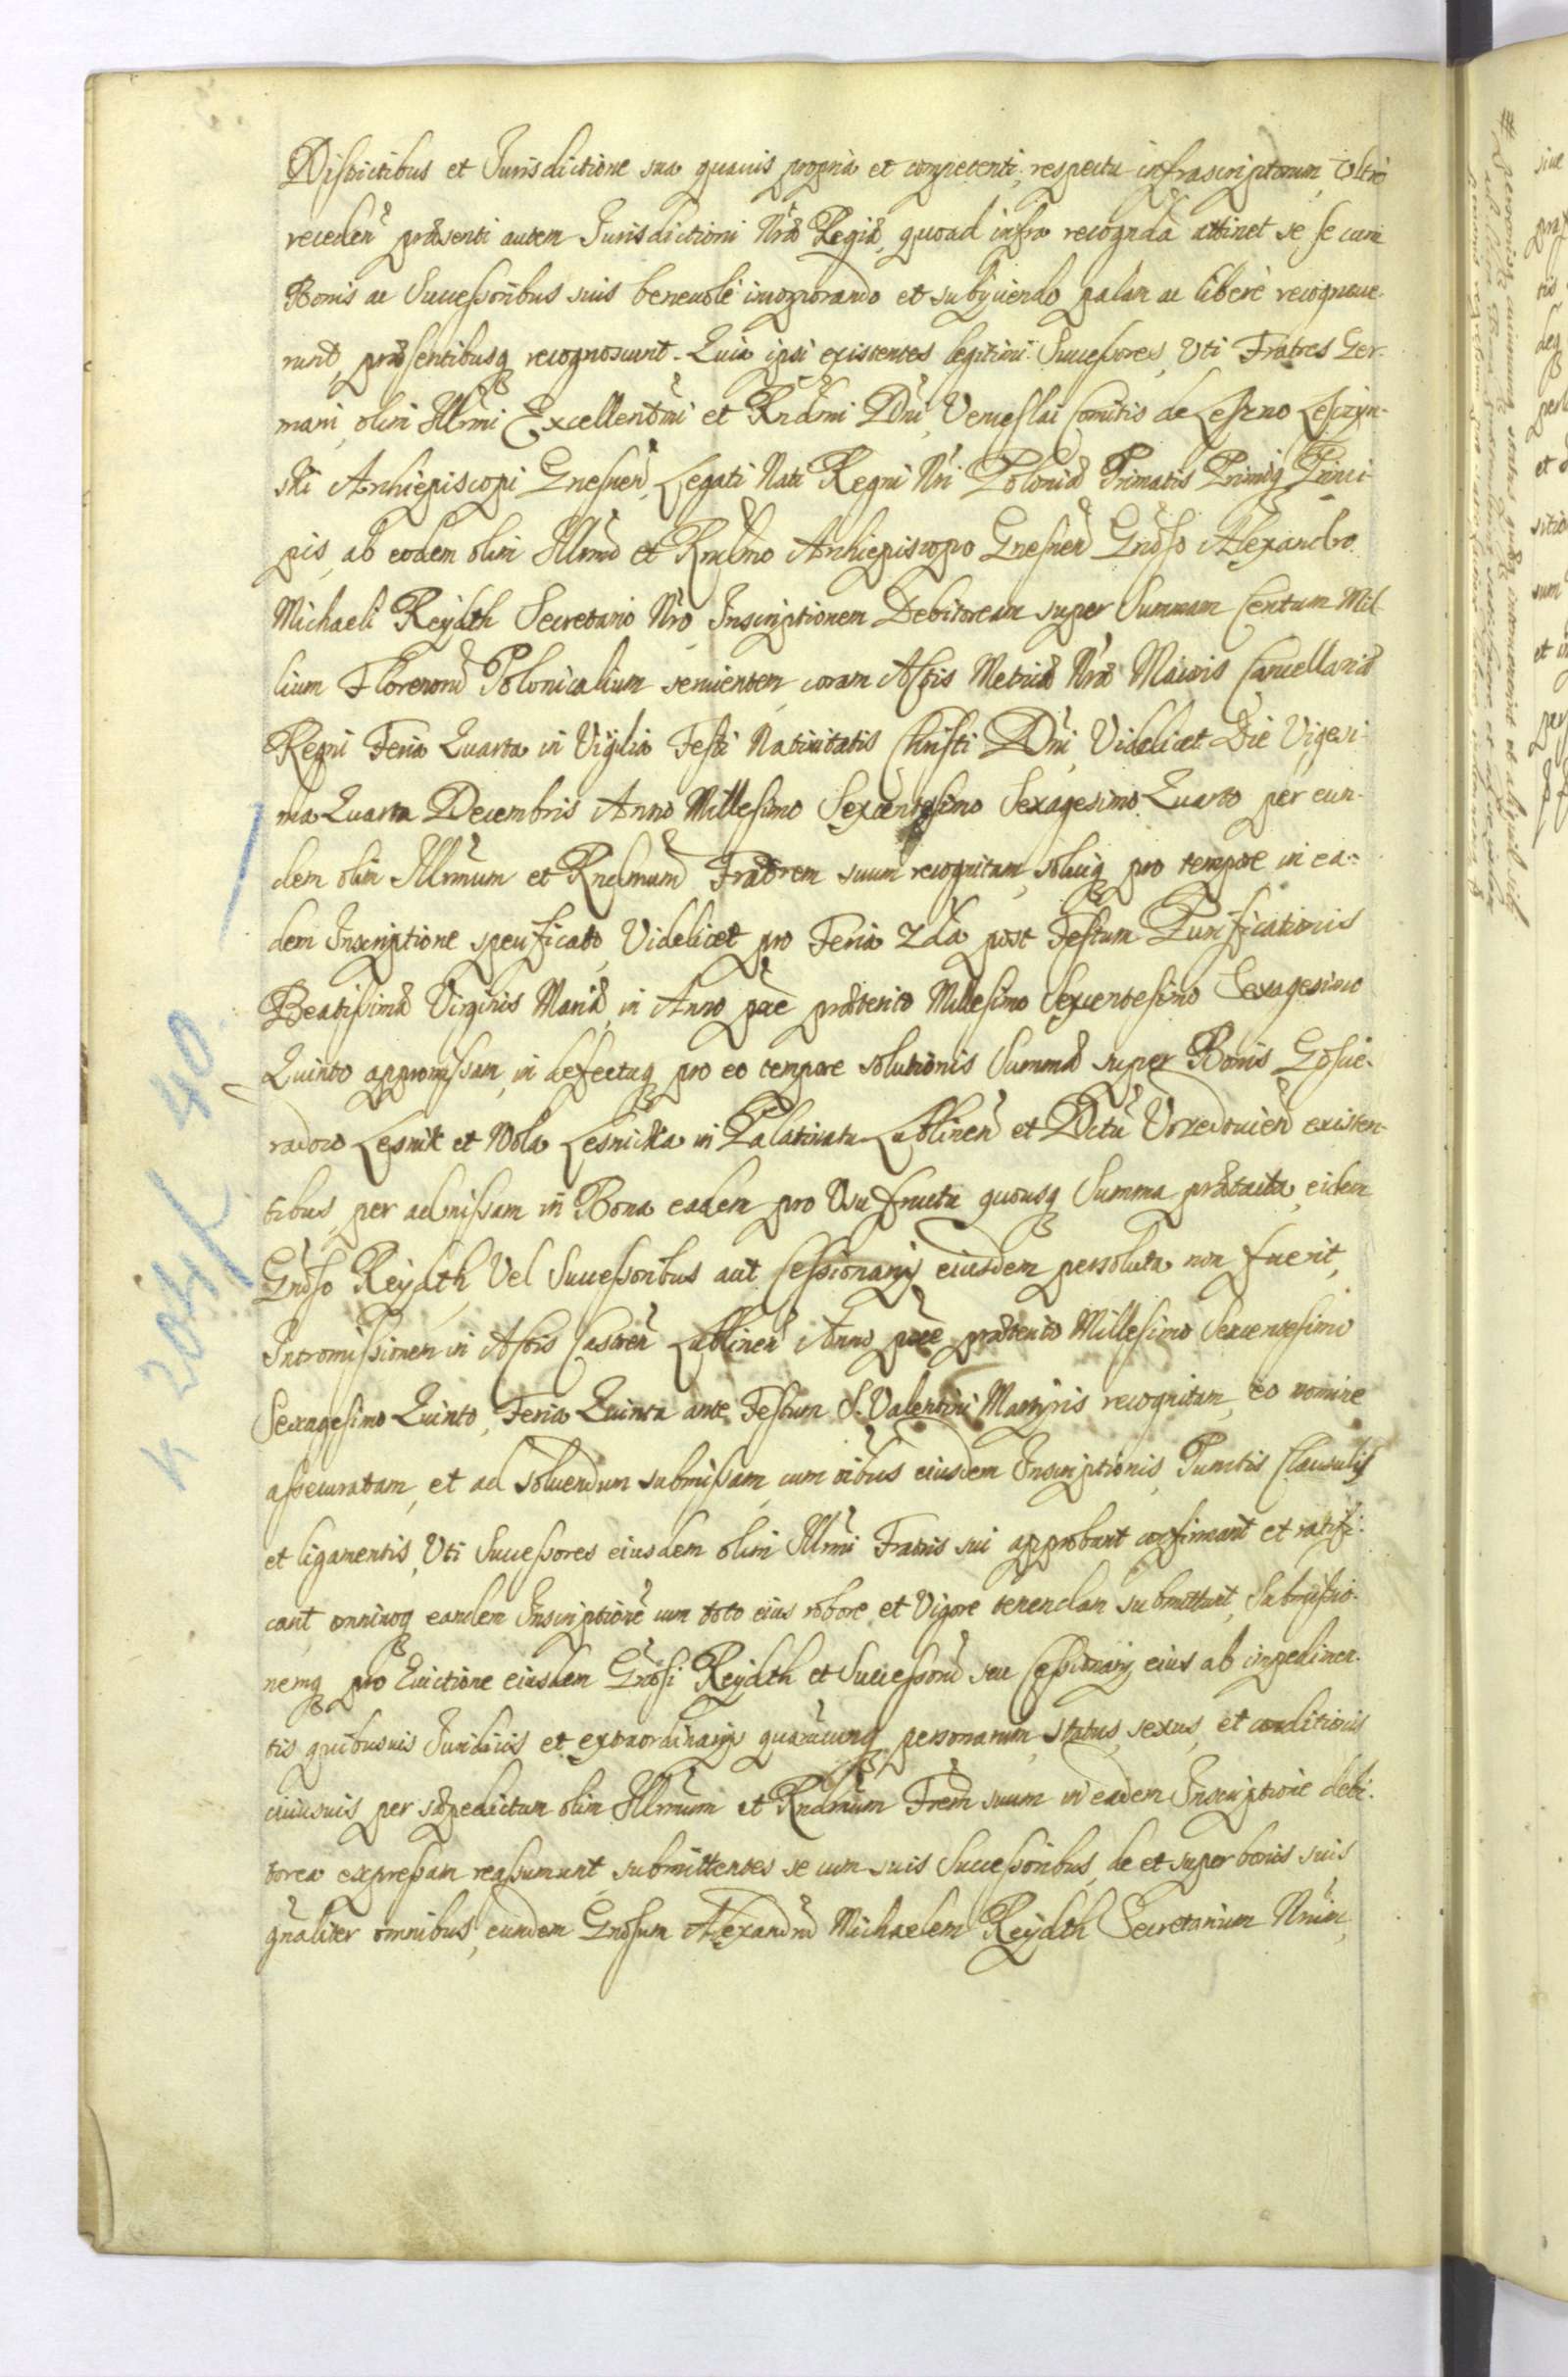 Districtibus et Jurisdictione sua quauis propria et competenti, respectu infrascriptorum, Vltrò
receden̄ præsenti autem Jurisdictioni Nræ Regiæ, quoad infra recogn̄da attinet se se cum
Bonis ac Successoribus suis beneuolè incorporando et subyciendo palam ac liberè recognoue-
runt, præsentibusq recognoscunt. Quia ipsi existentes legitimi Successores, Vti Fratres Ger-
mani, olim Illrmi Excellentmi et Rndmi Dni, Venceslai Comitis de Leszno Leszczyn-
ski Archiepiscopi Gnesnen̄, Legati Nati Regni Nri Poloniæ Primatis Primiq Princi-
pis, ab eodem olim Illrmo et Rndmo Archiepiscopo Gnesnen̄ Gnoso Alexandro
Michaeli Reijdth Secretario Nro, Inscriptionem Debitoream super Summam Centum Mil-
lium Florenorū Polonicalium seruientem, coram Actis Metricæ Nræ Maioris Cancellariæ
Regni Feria Quarta in Vigilia Festi Natiuitatis Christi Dni, Videlicet Die Vigesi-
ma Quarta Decembris Anno Millesimo Sexcentesimo Sexagesimo Quarto per eun-
dem olim Illrmum et Rndmum Fratrem suum recognitam, soluiq pro tempore in ea-
dem Inscriptione specificato, Videlicet pro Feria 2da post Festum Purificationis
Beatissimæ Virginis Mariæ, in Anno pxe præterito Millesimo Sexcentesimo Sexagesimo
Quinto appromissam, in defectuq pro eo tempore solutionis Summæ super Bonis Goscie-
radow Lesnik et Wola Lesnicka in Palatinatu Lublinen̄ et Dctū Vrzedouien̄ existen-
tibus, per admissam in Bona eadem pro Vsu fructu quousq Summa prætacta, eidem
Gnoso Reijdth, Vel Successoribus aut Cessionarijs eiusdem persoluta non fuerit,
Intromissionem in Actis Castren̄ Lublinen̄ Anno pxe præterito Millesimo Sexcentesimo
Sexagesimo Quinto, Feria Quinta ante Festum S. Valentini Martyris recognitam, eo nomine
assecuratam, et ad soluendum submissam, cum oibus eiusdem Inscriptionis, Punctis Clausulis
et ligamentis, Vti Successores eiusdem olim Illrmi Fratris sui approbant confirmant et ratifi-
cant, omninoq eandem Inscriptionē cum toto eius robore et Vigore tenendam submittunt, Submissio-
nemq pro Euictione eiusdem Gnosi Reijdth et Successorū seu Cessionarij eius ab impedimen-
tis quibusuis Juridicis et extraordinarijs quarūcunq personarum, status, sexus, et conditionis
cuiusuis, per sæpedictum olim Illrmum et Rndmum Frem suum in eadem Inscriptione debi-
torea expressam reassumunt, submittentes se cum suis Successoribus, de et super bonis suis
gnaliter omnibus, eundem Gnosum Alexandrū Michaelem Reijdth Secretarium Nrum,
K 204 K 40